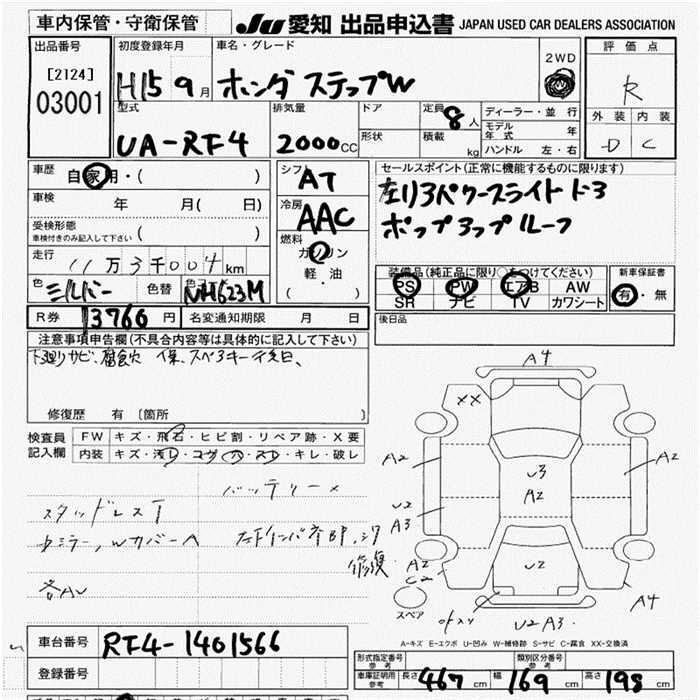 車内保管・守衛保管
JU 愛知 出品申込書 JAPAN USED CAR DEALERS ASSOCIATION
出品番号 初度登録年月 車名・グレード 評価点
[2124] 2WD
03001 H15 9月 ホンダ ステップW R
型式 排気量 ドア 定員 8人 ディーラー・並行 外装 内装
モデル年式 年
UA-RF4 2000CC 形状 積載 kg ハンドル 左・右 D C
車歴 自家用・( ) シフト AT セールスポイント(正常に機能するものに限ります)
車検 年 月( 日) 冷房 AAC
受検形態 ( ) ポップアップルーフ
車検付きのみ記入して下さい 燃料
走行 11万3千004km ガソリン 軽・油 ( ) 装備品(純正品に限り○をつけてください) 新車保証書
色 シルバー 色替 色 NH623M PS PW エアB AW 有・無
SR ナビ TV カワシート
R券 13760円 名変通知期限 月 日 後日品
注意事項申告欄(不具合内容等は具体的に記入して下さい)
下廻りサビ、腐食
修復歴 有 [箇所 ]
検査員 FW キズ・飛石・ヒビ割・リペア跡・X要
記入欄 内装 キズ・汚レ・コゲ・穴・スレ・キレ・破レ
A4
XX
A2 A2
U3
A2
U2
A3
U2
A2
C2
A4
U2 A3
バッテリー×
スタッドレスT
修復
スペア
A-キズ E-エクボ U-凹み W-補修跡 S-サビ C-腐食 XX-交換済
車台番号 RF4-1401566
登録番号
形式指定番号 参考 類別区分番号 参考
車庫証明用 参考 長さ 467cm 幅 169cm 高さ 198cm